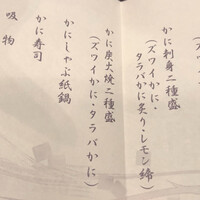 かに刺身二種盛
(ズワイかに・
タラバかに炙り・レモン締)
かに炭火焼二種盛
(ズワイかに・タラバかに)
かにしゃぶ紙鍋
かに寿司
吸物